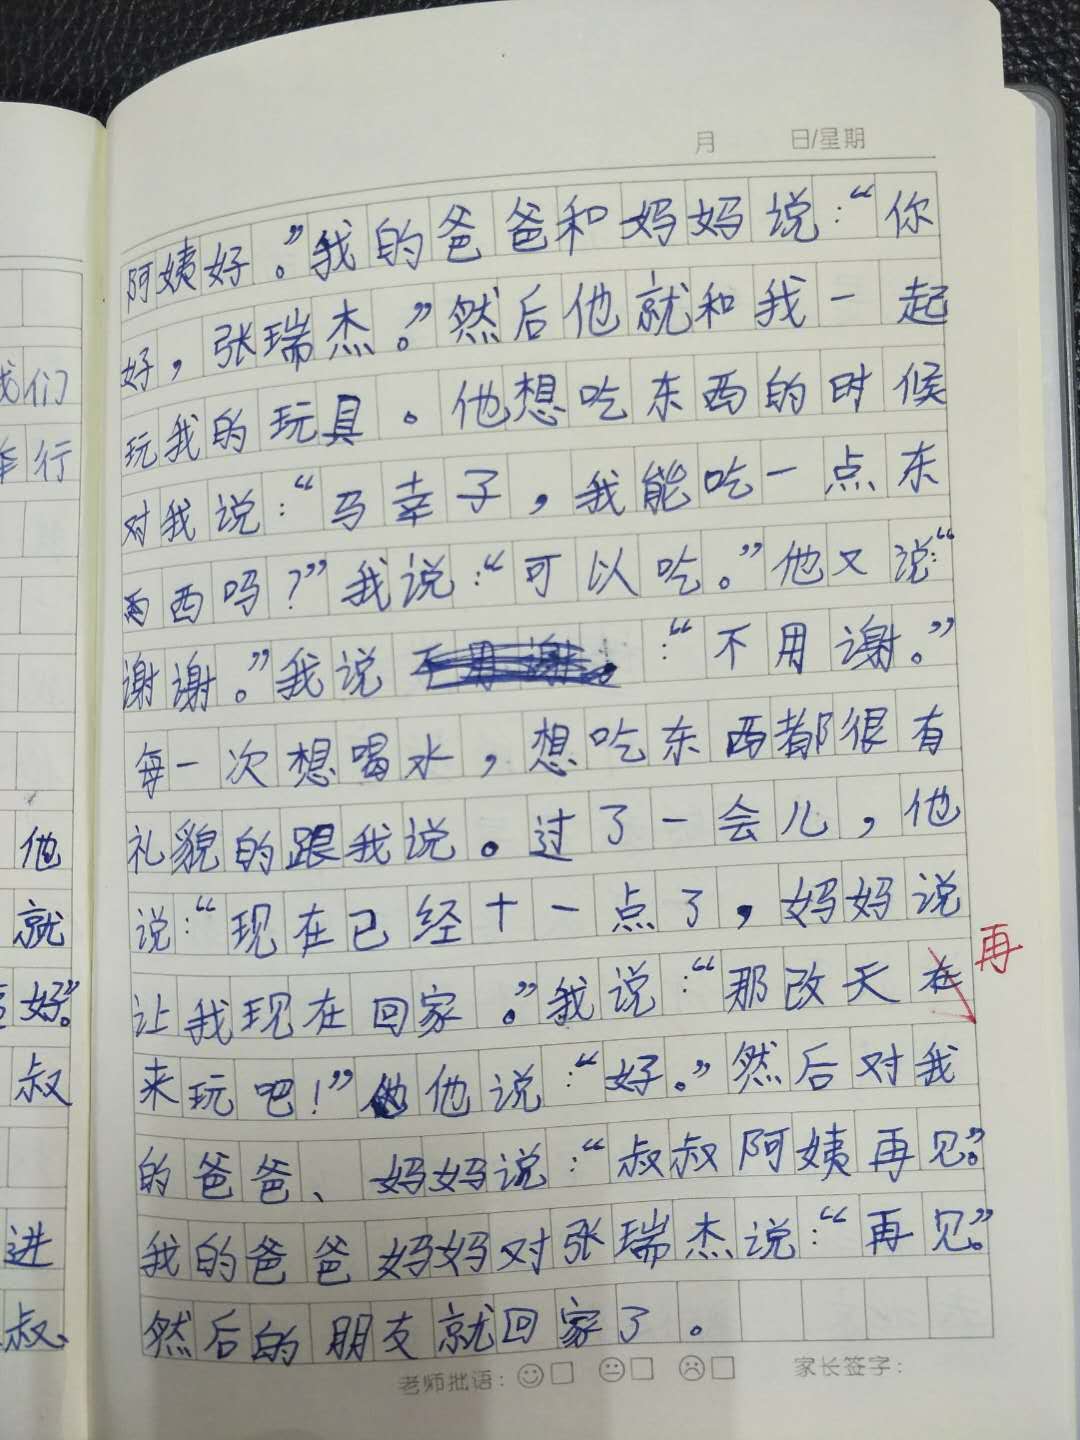 月 日/星期
阿姨好。”我的爸爸和妈妈说:“你
好，张瑞杰。”然后他就和我一起
玩我的玩具。他想吃东西的时候
对我说:“马幸子，我能吃一点东
西西吗?”我说:“可以吃。”他又说:“
谢谢。”我说:“不用谢。”
每一次想喝水，想吃东西都很有
礼貌的跟我说。过了一会儿，他
说:“现在已经十一点了，妈妈说
让我现在回家。”我说:“那改天在
再
来玩吧!”他他说:“好。”然后对我
的爸爸、妈妈说:“叔叔阿姨再见。”
我的爸爸妈妈对张瑞杰说:“再见。”
然后的朋友就回家了。
老师批语: 家长签字:
我们
行
他
就
好。”
叔
进
叔